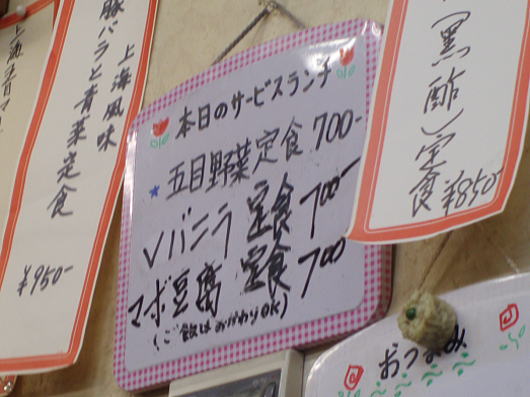 上海風味
豚バラと青菜定食
¥950-
本日のサービスランチ
★五目野菜定食 700-
レバニラ 定食 700-
マーボ豆腐 定食 700
(ご飯はおかわりOK)
(黒酢)定食
¥850-
おつまみ